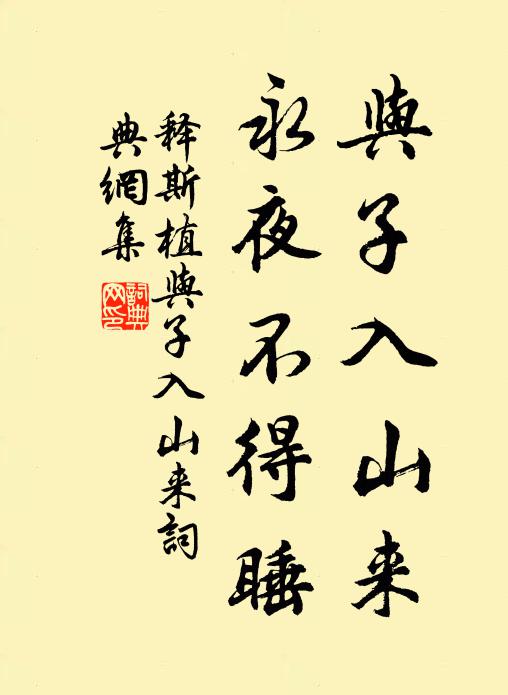 與子入山来
永夜不得睡
释斯植與子入山来詞
典網集
詞典網印